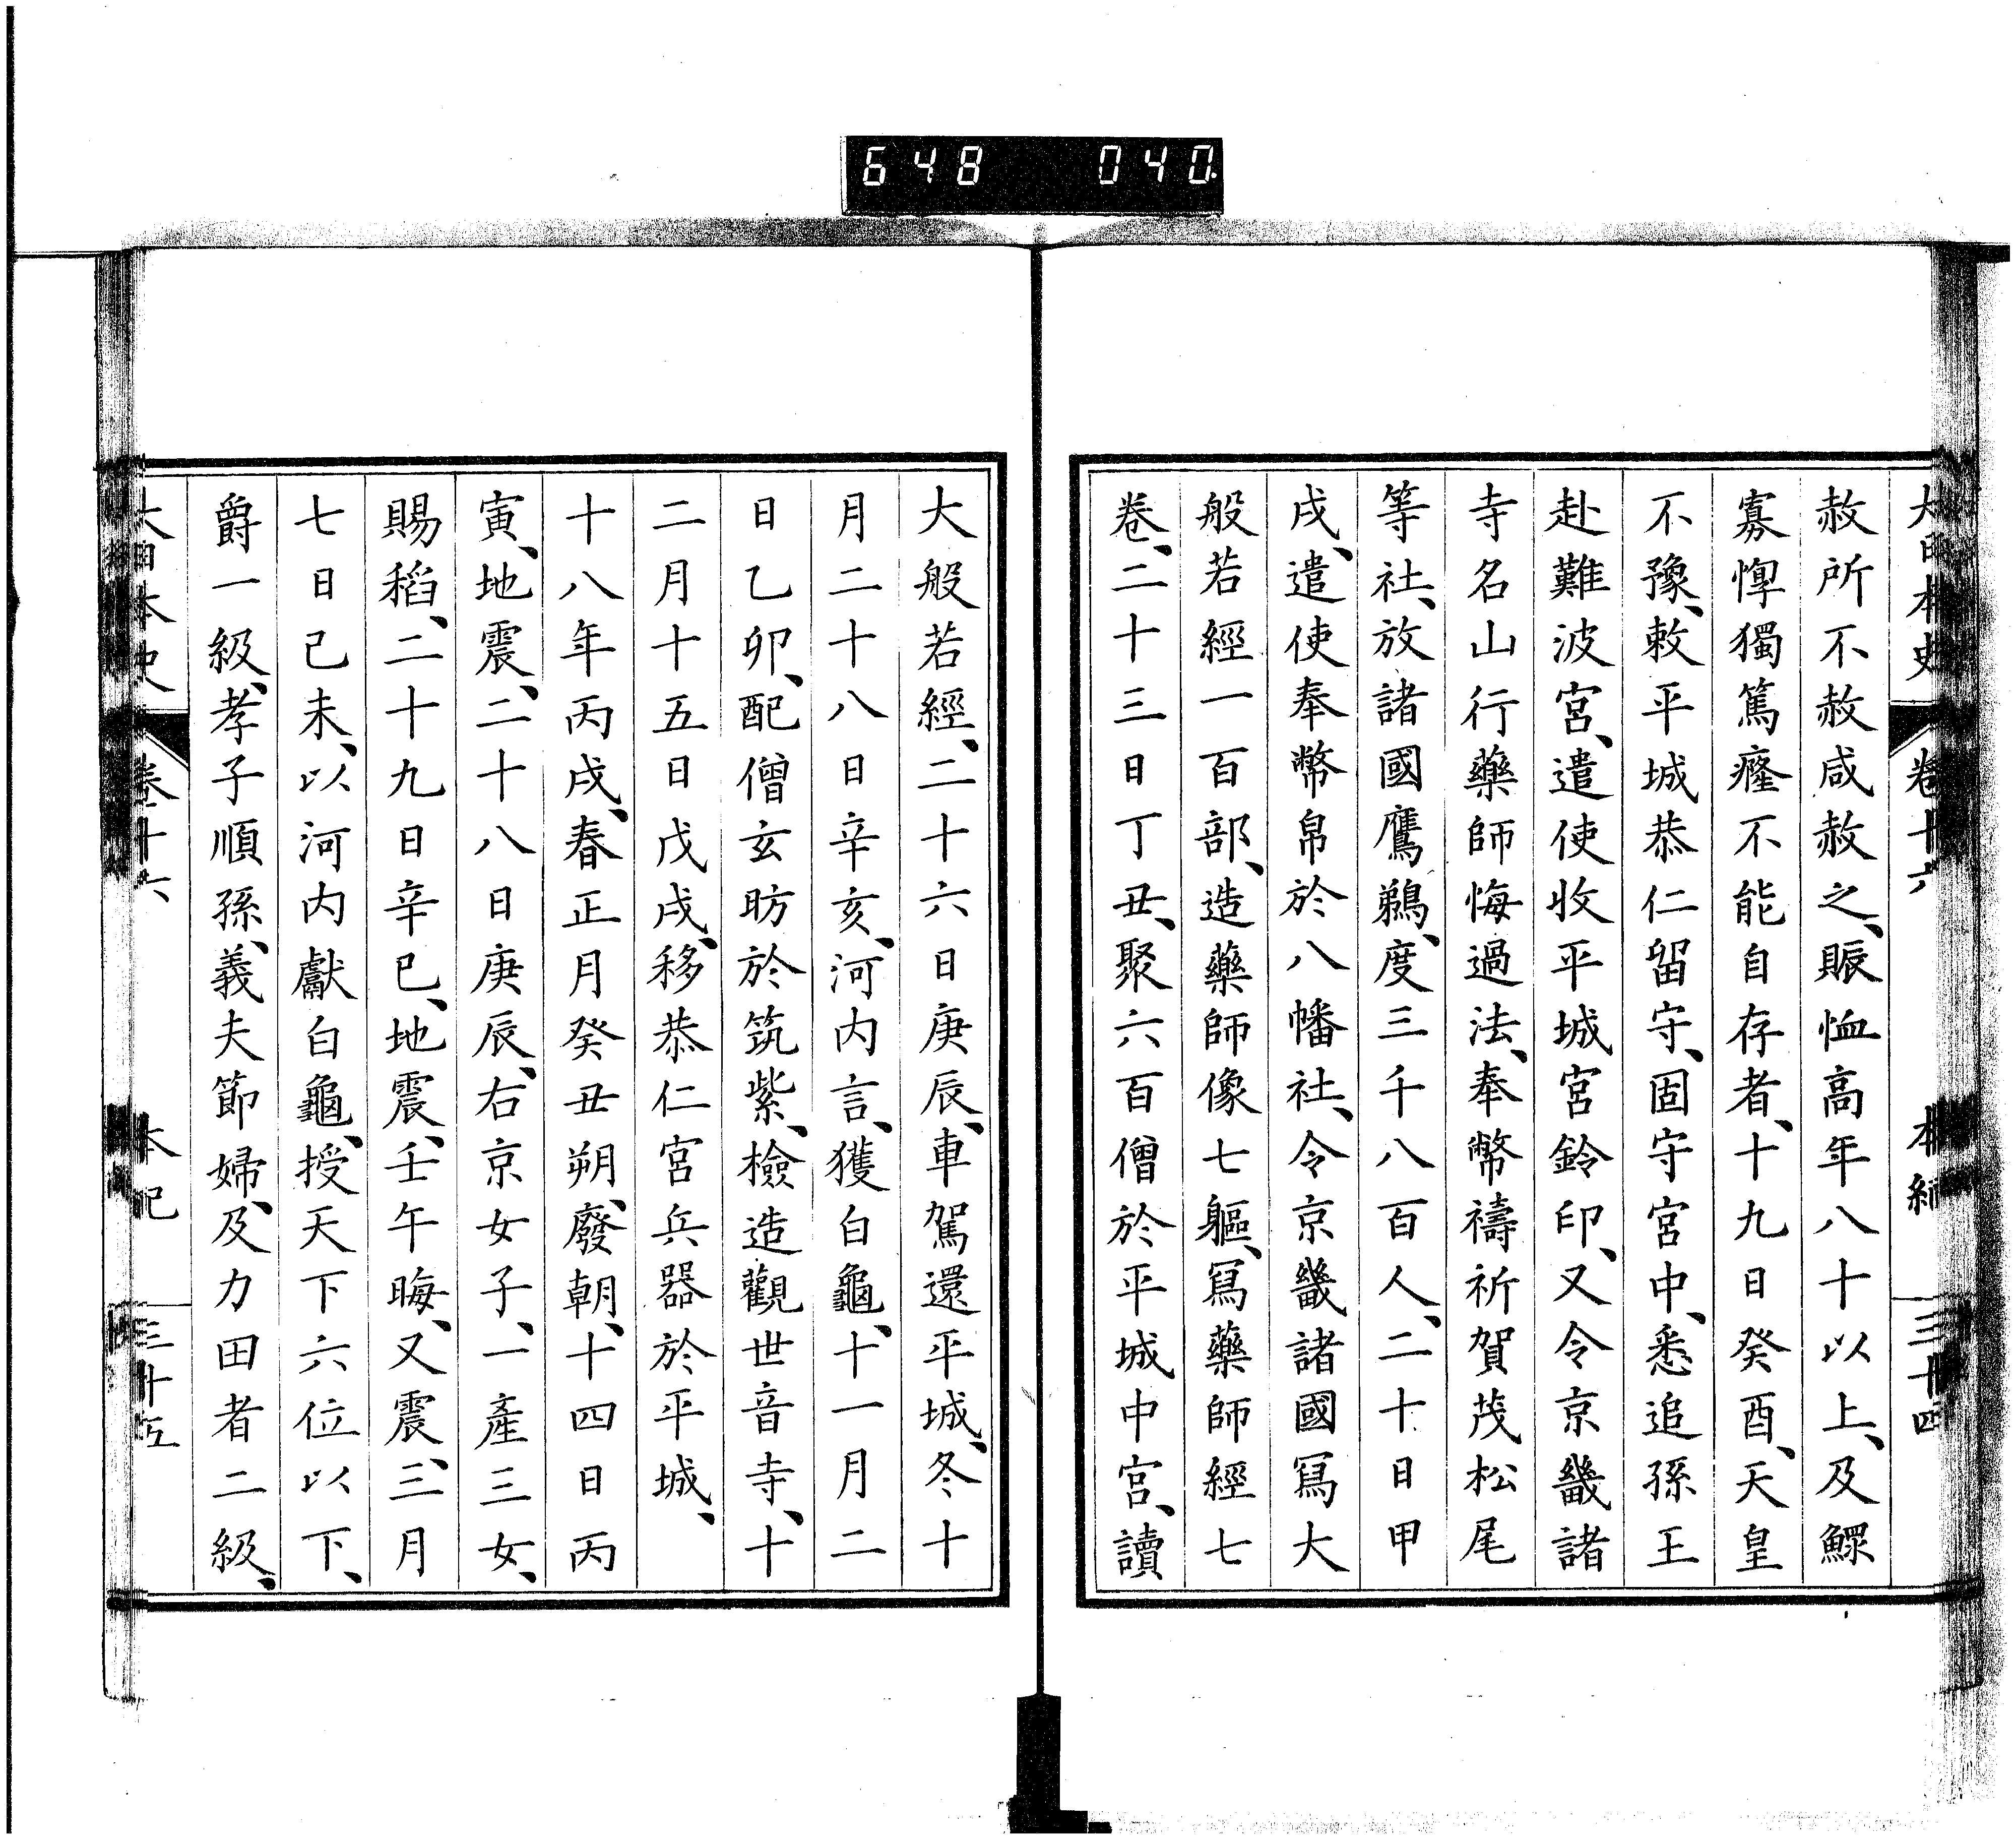 648 040
大日本史 卷十六 本紀 三十四
赦所不赦咸赦之、賑恤高年八十以上、及鰥
寡惸獨篤癃不能自存者、十九日癸酉、天皇
不豫、敕平城恭仁留守、固守宮中、悉追孫王
赴難波宮、遣使收平城宮鈴印、又令京畿諸
寺名山行藥師悔過法、奉幣禱祈賀茂松尾
等社、放諸國鷹鵜、度三千八百人、二十日甲
戌、遣使奉幣帛於八幡社、令京畿諸國寫大
般若經一百部、造藥師像七軀、寫藥師經七
卷、二十三日丁丑、聚六百僧於平城中宮、讀
大般若經、二十六日庚辰、車駕還平城、冬十
月二十八日辛亥、河內言、獲白龜、十一月二
日乙卯、配僧玄昉於筑紫、檢造觀世音寺、十
二月十五日戊戌、移恭仁宮兵器於平城、
十八年丙戌、春正月癸丑朔、廢朝、十四日丙
寅、地震、二十八日庚辰、右京女子、一產三女、
賜稻、二十九日辛巳、地震、壬午晦、又震、三月
七日己未、以河內獻白龜、授天下六位以下、
爵一級、孝子順孫、義夫節婦、及力田者二級、
大日本史 卷十六 本紀 三十五